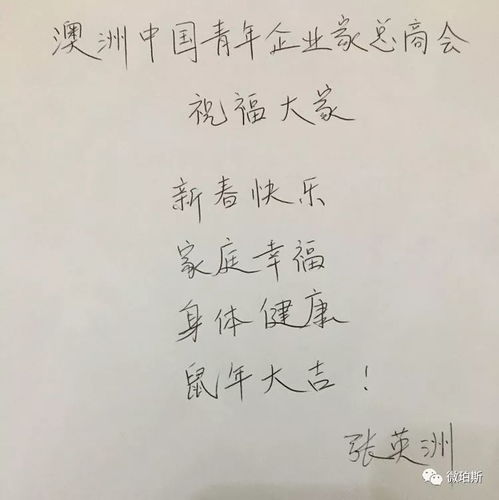 澳洲中国青年企业家总商会
祝福大家
新春快乐
家庭幸福
身体健康
鼠年大吉！
张英洲
微珀斯